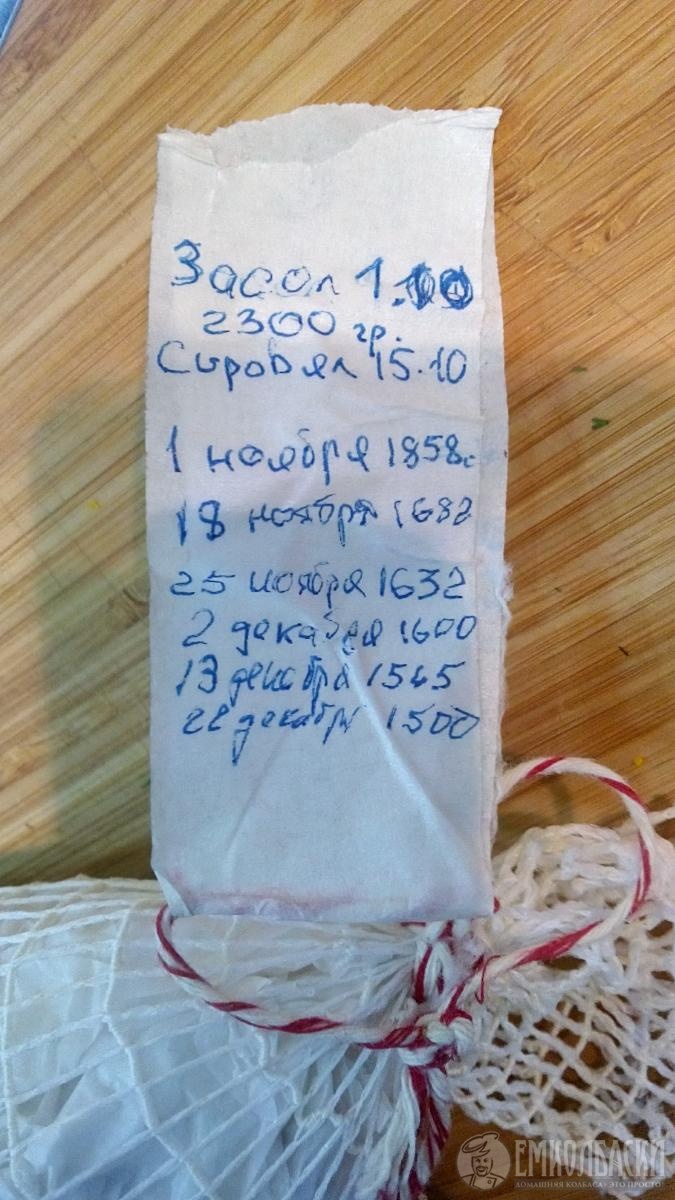 Засол 1.10
2300 гр.
Сыровял 15.10
1 ноября 1858г
18 ноября 1682
25 ноября 1632
2 декабря 1600
13 декабря 1565
22 декабря 1500
ЕМКОЛБАСКИ
ДОМАШНЯЯ КОЛБАСА - ЭТО ПРОСТО!